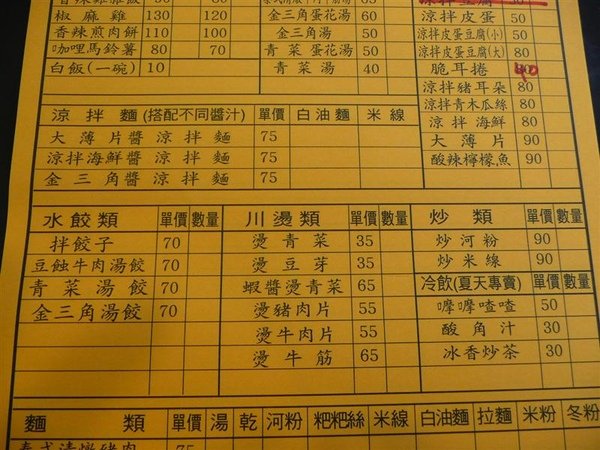 椒麻雞 130 120
香辣煎肉餅 110 100
咖哩馬鈴薯 80 70
白飯(一碗) 10
金三角蛋花湯 60
金三角湯 50
青菜蛋花湯 50
青菜湯 40
涼拌皮蛋 50
涼拌皮蛋豆腐(小) 50
涼拌皮蛋豆腐(大) 80
脆耳捲 80 40
涼拌豬耳朵 80
涼拌青木瓜絲 80
涼拌海鮮 80
大薄片 90
酸辣檸檬魚 90
涼拌麵(搭配不同醬汁) 單價 白油麵 米線
大薄片醬涼拌麵 75
涼拌海鮮醬涼拌麵 75
金三角醬涼拌麵 75
水餃類 單價 數量
拌餃子 70
豆蝕牛肉湯餃 70
青菜湯餃 70
金三角湯餃 70
川燙類 單價 數量
燙青菜 35
燙豆芽 35
蝦醬燙青菜 65
燙豬肉片 55
燙牛肉片 55
燙牛筋 65
炒類 單價 數量
炒河粉 90
炒米線 90
冷飲(夏天專賣) 單價 數量
嚤嚤喳喳 50
酸角汁 30
冰香炒茶 30
麵類 單價 湯 乾 河粉 粑粑絲 米線 白油麵 拉麵 米粉 冬粉
泰式清燉豬肉 75